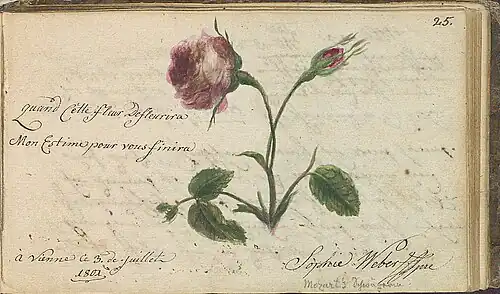 25.
Quand Cette fleur Defleurira
Mon Estime pour vous finira
à Vienne le 3. de juillet
1801
Sophie Weber
Mozart's